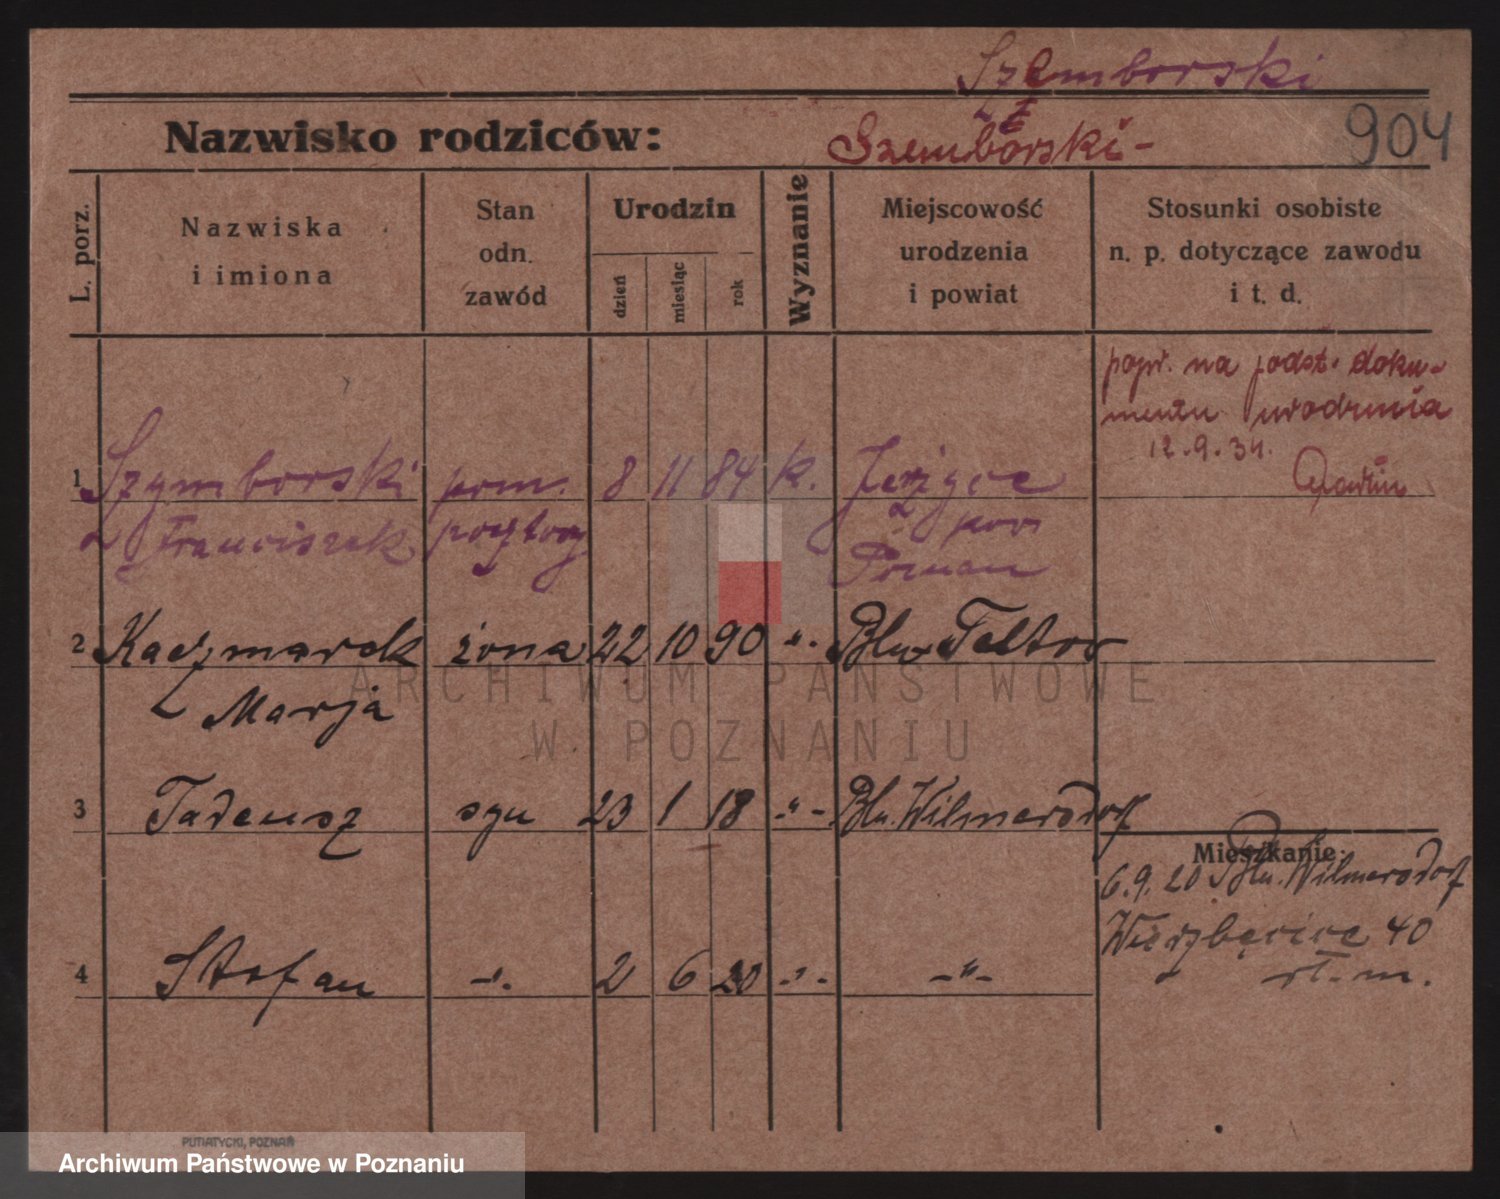 Szemborski
Nazwisko rodziców:
Szemborski-
904
L. porz.
Nazwiska
i imiona
Stan
odn.
zawód
Urodzin
dzień
miesiąc
rok
Wyznanie
Miejscowość
urodzenia
i powiat
Stosunki osobiste
n. p. dotyczące zawodu
i t. d.
popr. na podst. doku-
mentu urodzenia
12.9.34.
1 Szymborski pom. 8 11 84 k. Jeżyce
Franciszek pocztowy pow
Poznań
2 Kaczmarek żona 22 10 90 -"- Bln Teltow
Marja
3 Tadeusz syn 23 1 18 -"- Bln. Wilmersdorf
Mieszkanie:
6.9.20 Bln. Wilmersdorf
Wierzbięcice 40
4 Stefan -"- 2 6 20 -"- -"-
ARCHIWUM PAŃSTWOWE
W POZNANIU
PUTIATYCKI, POZNAŃ
Archiwum Państwowe w Poznaniu